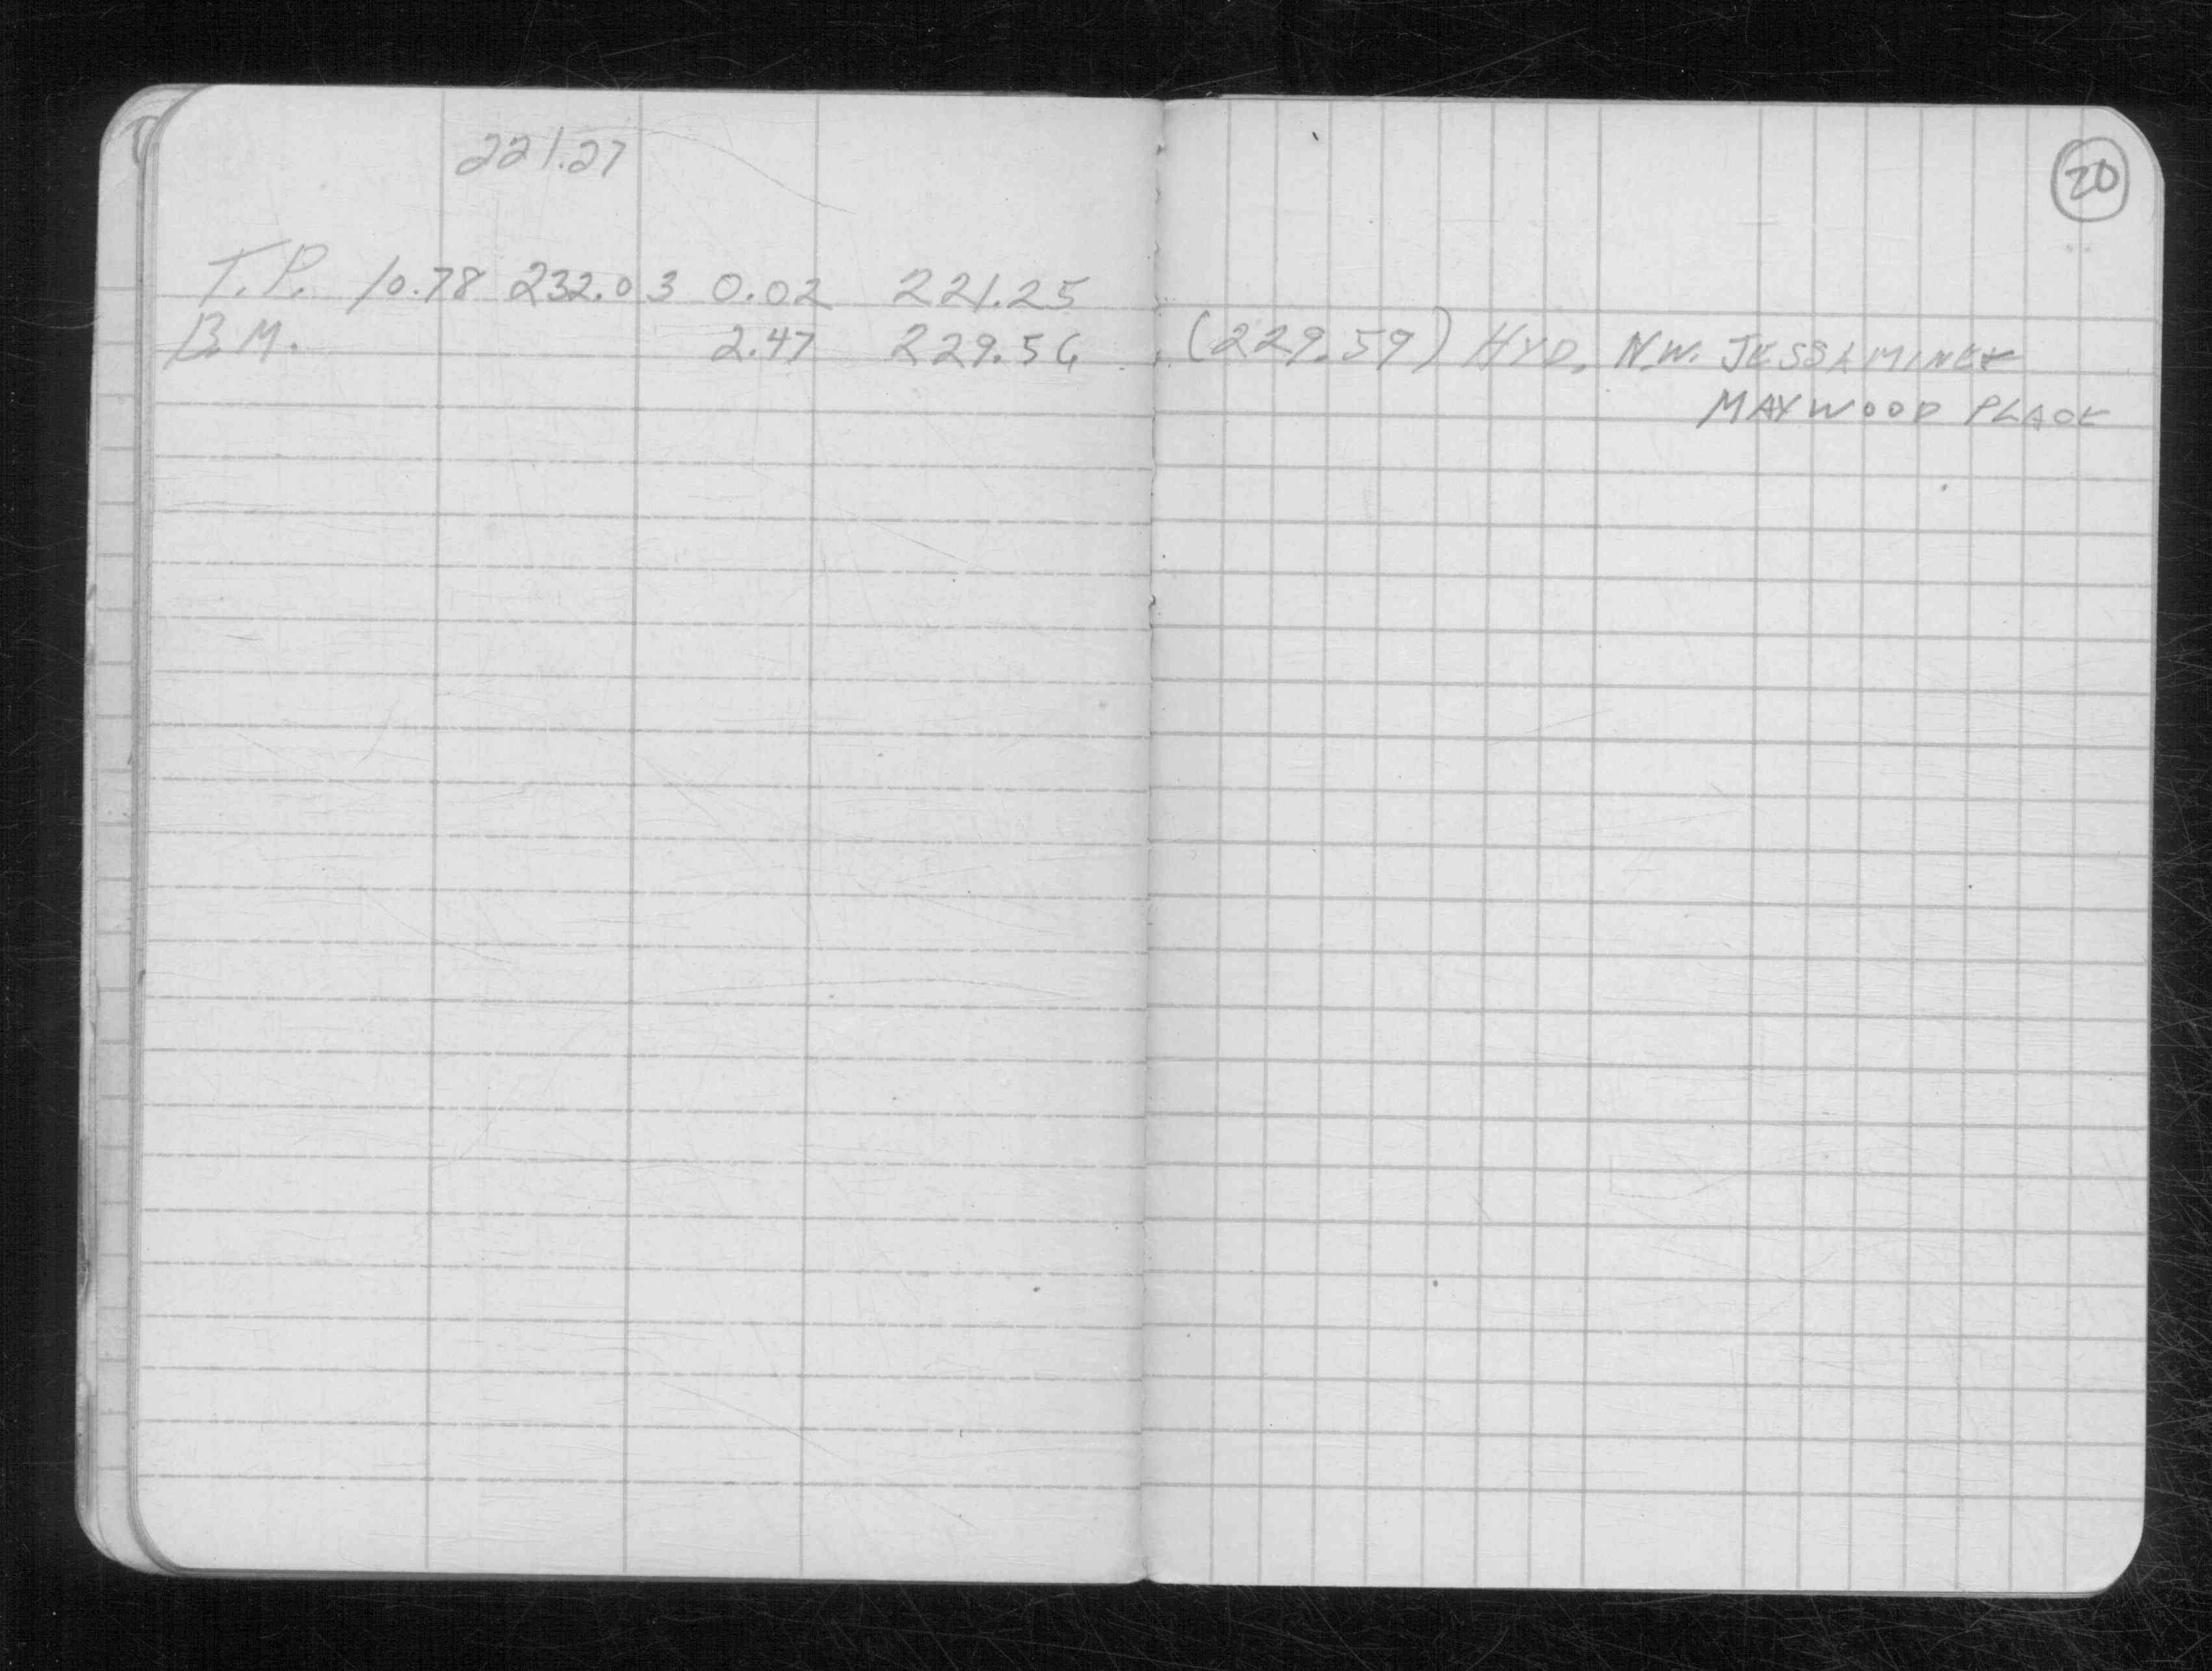 221.27
20
T.P. 10.78 232.03 0.02 221.25
B.M. 2.47 229.56 (229.59) HYD. N.W. JESSAMINE &
MAYWOOD PLACE